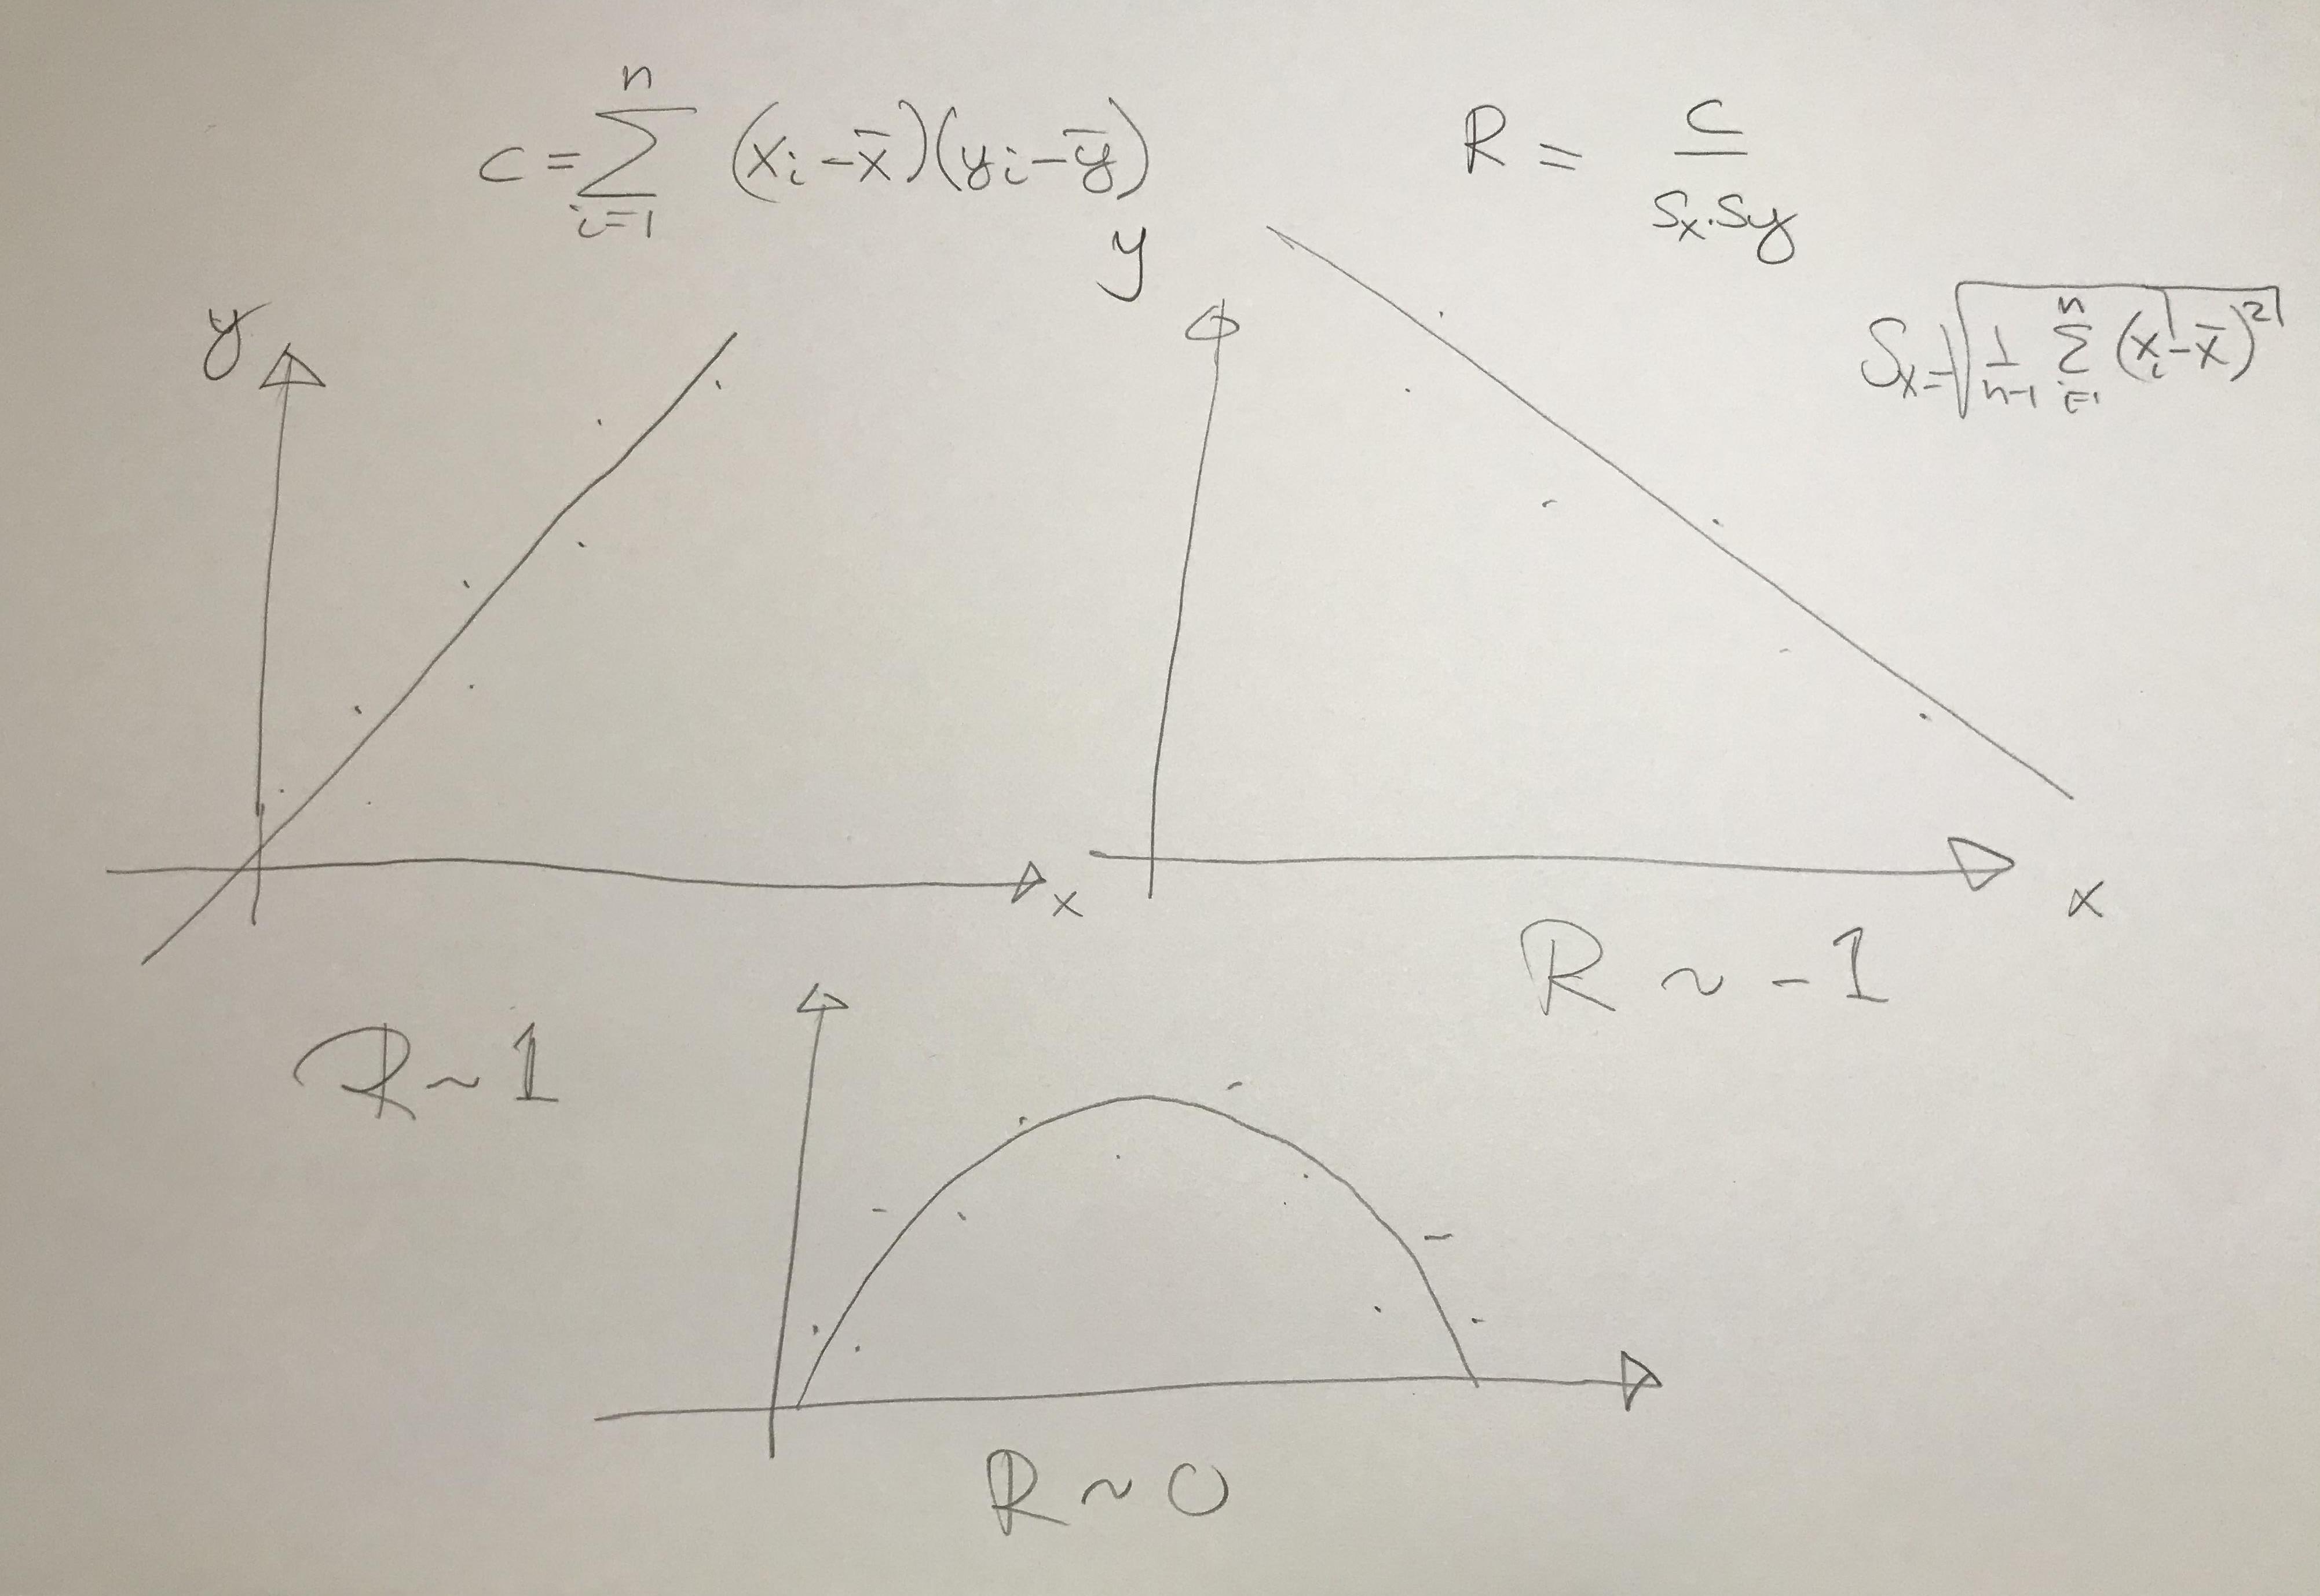 c = ∑_{i=1}^{n} (x_i - x̄)(y_i - ȳ)
R = c / (s_x · s_y)
S_x = √(1/(n-1) ∑_{i=1}^{n} (x_i - x̄)²)
y
x
R ~ 1
y
x
R ~ -1
R ~ 0